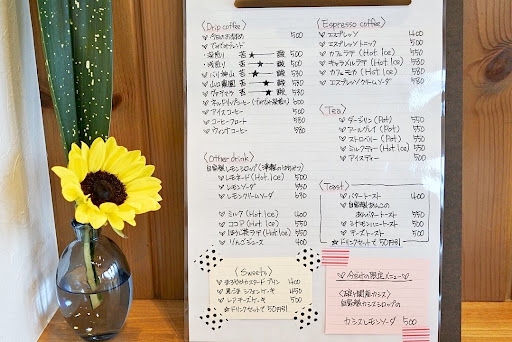 〈Drip coffee〉
今日のお勧め 500
・深煎り 苦 ★ 酸 500
・浅煎り 苦 ★ 酸 500
バリ神山 苦 ★ 酸 530
山口農園 苦 ★ 酸 530
苦 ★ 酸 580
600
アイスコーヒー 500
コーヒーフロート 580
ウィンナコーヒー 580
〈Other drink〉
自家製レモンシロップ
レモネード (Hot. Ice) 500
レモンソーダ 550
レモンクリームソーダ 630
ミルク (Hot. Ice) 400
ココア (Hot. Ice) 550
ほうじ茶ラテ (Hot. Ice) 550
りんごジュース 400
〈Espresso coffee〉
エスプレッソ 400
エスプレッソトニック 500
カフェラテ (Hot. Ice) 550
キャラメルラテ (Hot. Ice) 580
カフェモカ (Hot. Ice) 580
エスプレッソクリームソーダ 580
〈Tea〉
ダージリン (Pot) 550
アールグレイ (Pot) 550
ストロベリー (Pot) 550
ミルクティー (Hot. Ice) 550
アイスティー 500
〈Toast〉
バタートースト 400
自家製あんこの
あんバタートースト 550
シナモンハニートースト 500
チーズトースト 500
☆ドリンクセットで50円引
〈Sweets〉
まろやかカスタードプリン 400
黒ごまシフォンケーキ 450
レアチーズケーキ 500
☆ドリンクセットで50円引
今月の限定メニュー
自家製カシスシロップの
カシスレモンソーダ 500